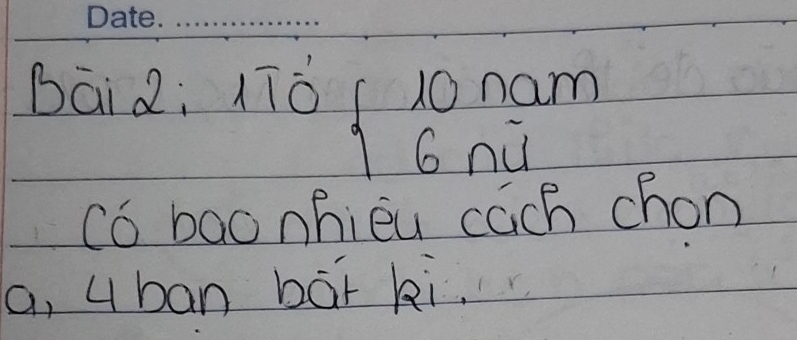 Date. ................
Bài 2: 1 Tổ { 10 nam
6 nữ
Có bao nhiêu cách chọn
a, 4 bạn bất kì.